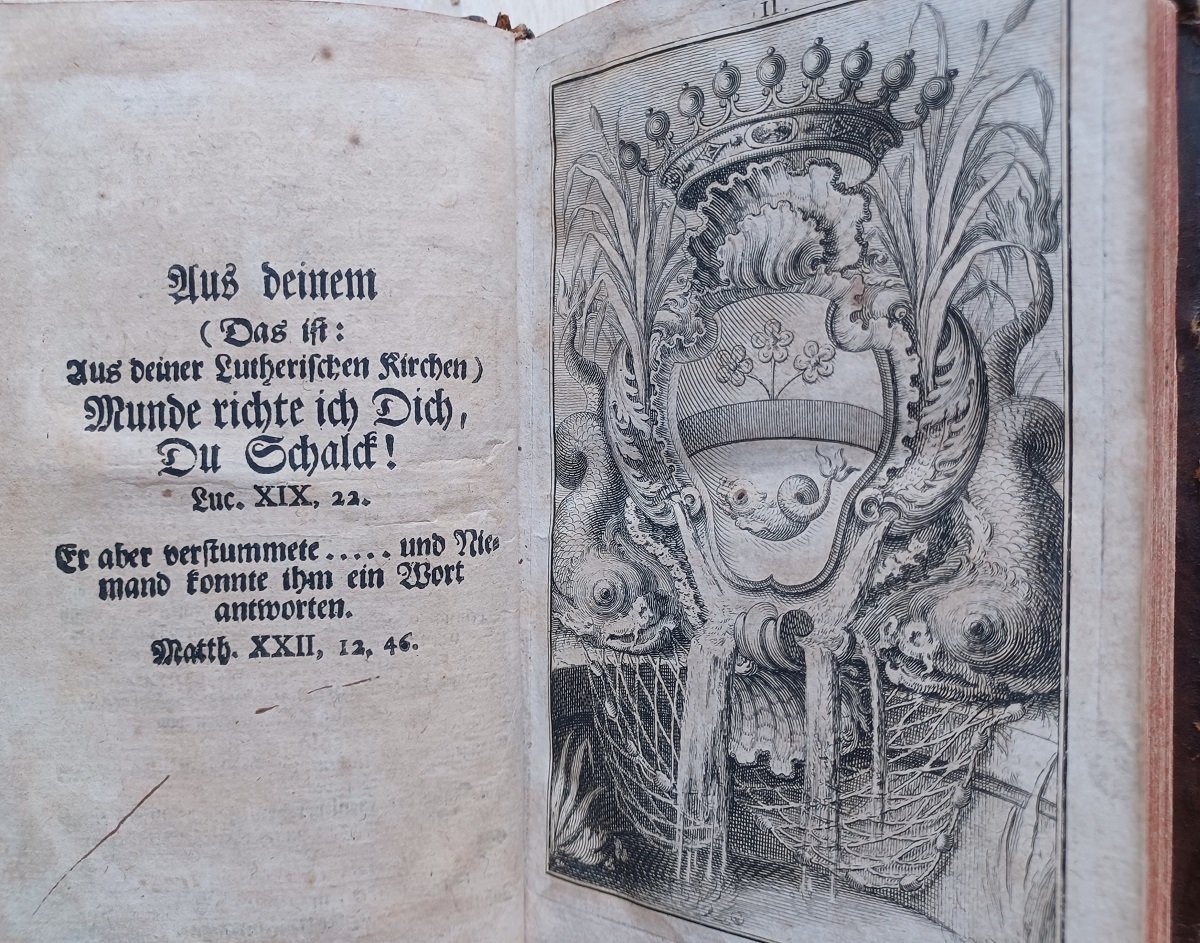 Aus deinem
(Das ist:
Aus deiner Lutherischen Kirchen)
Munde richte ich Dich,
Du Schalck!
Luc. XIX, 22.
Er aber verstummete..... und Nie-
mand konnte ihm ein Wort
antworten.
Matth. XXII, 12, 46.
II.